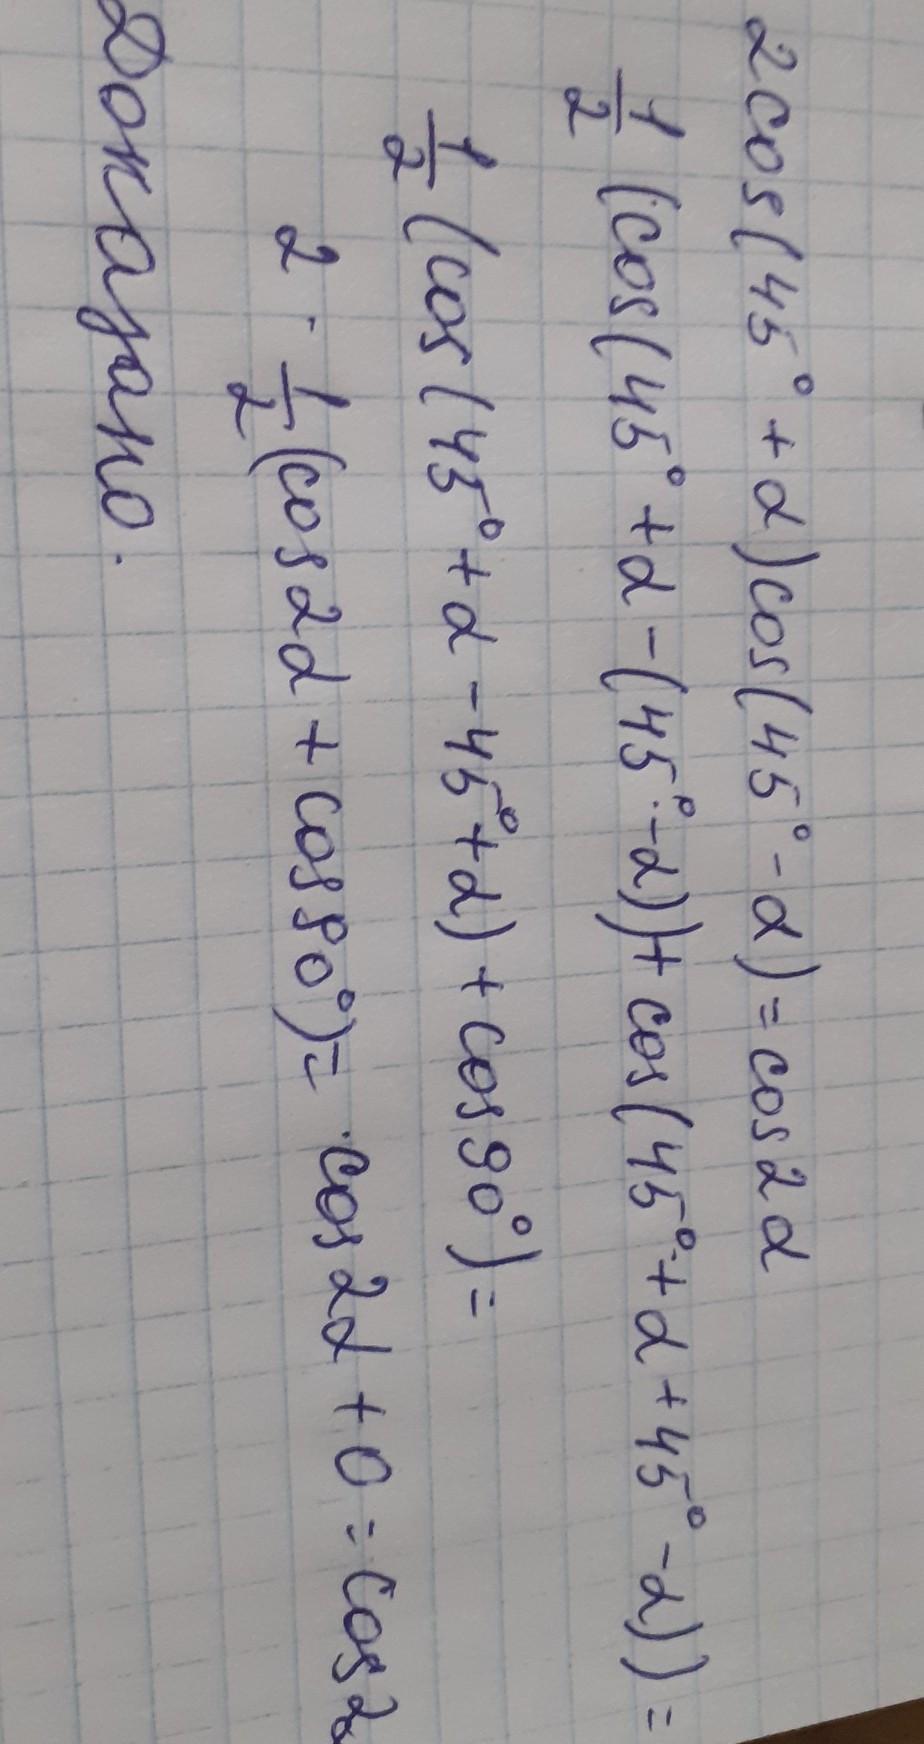 2cos(45° + α)cos(45° - α) = cos2α
1/2 (cos(45° + α - (45° - α)) + cos(45° + α + 45° - α)) =
1/2 (cos(45° + α - 45° + α) + cos90°) =
2 · 1/2 (cos2α + cos90°) = cos2α + 0 = cos2α
Доказано.